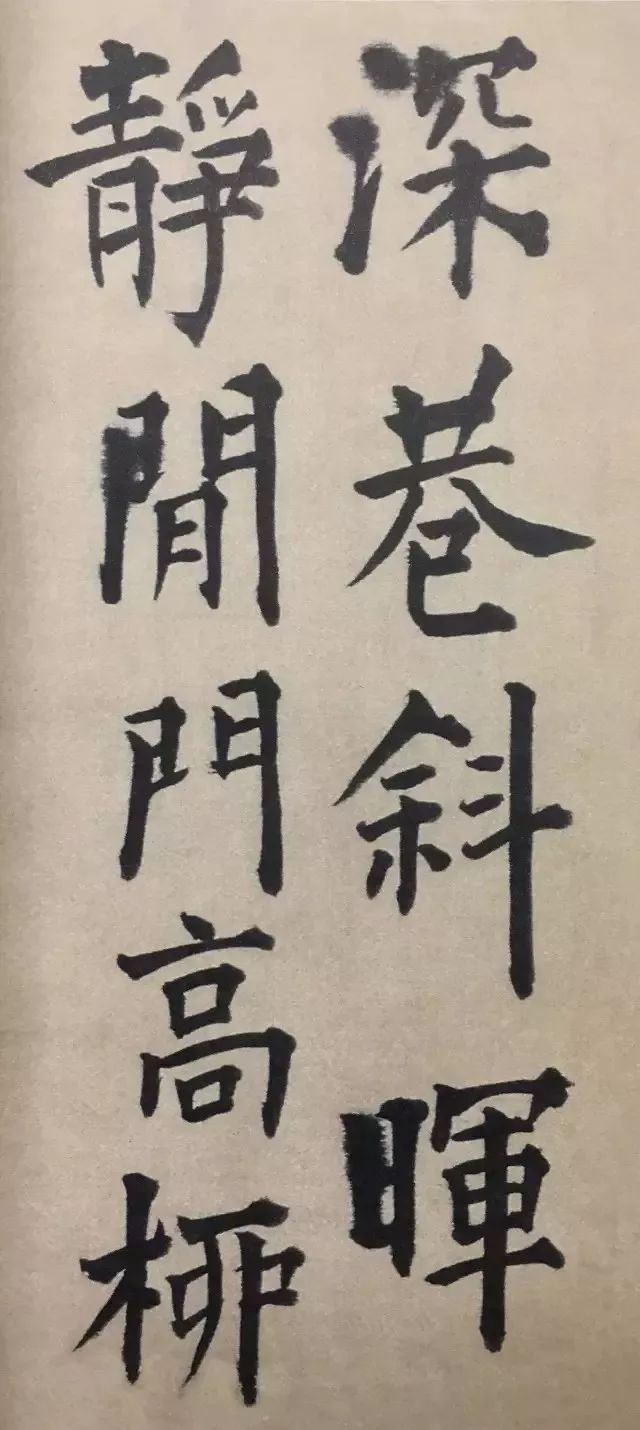 深巷斜暉
靜閒門高柳